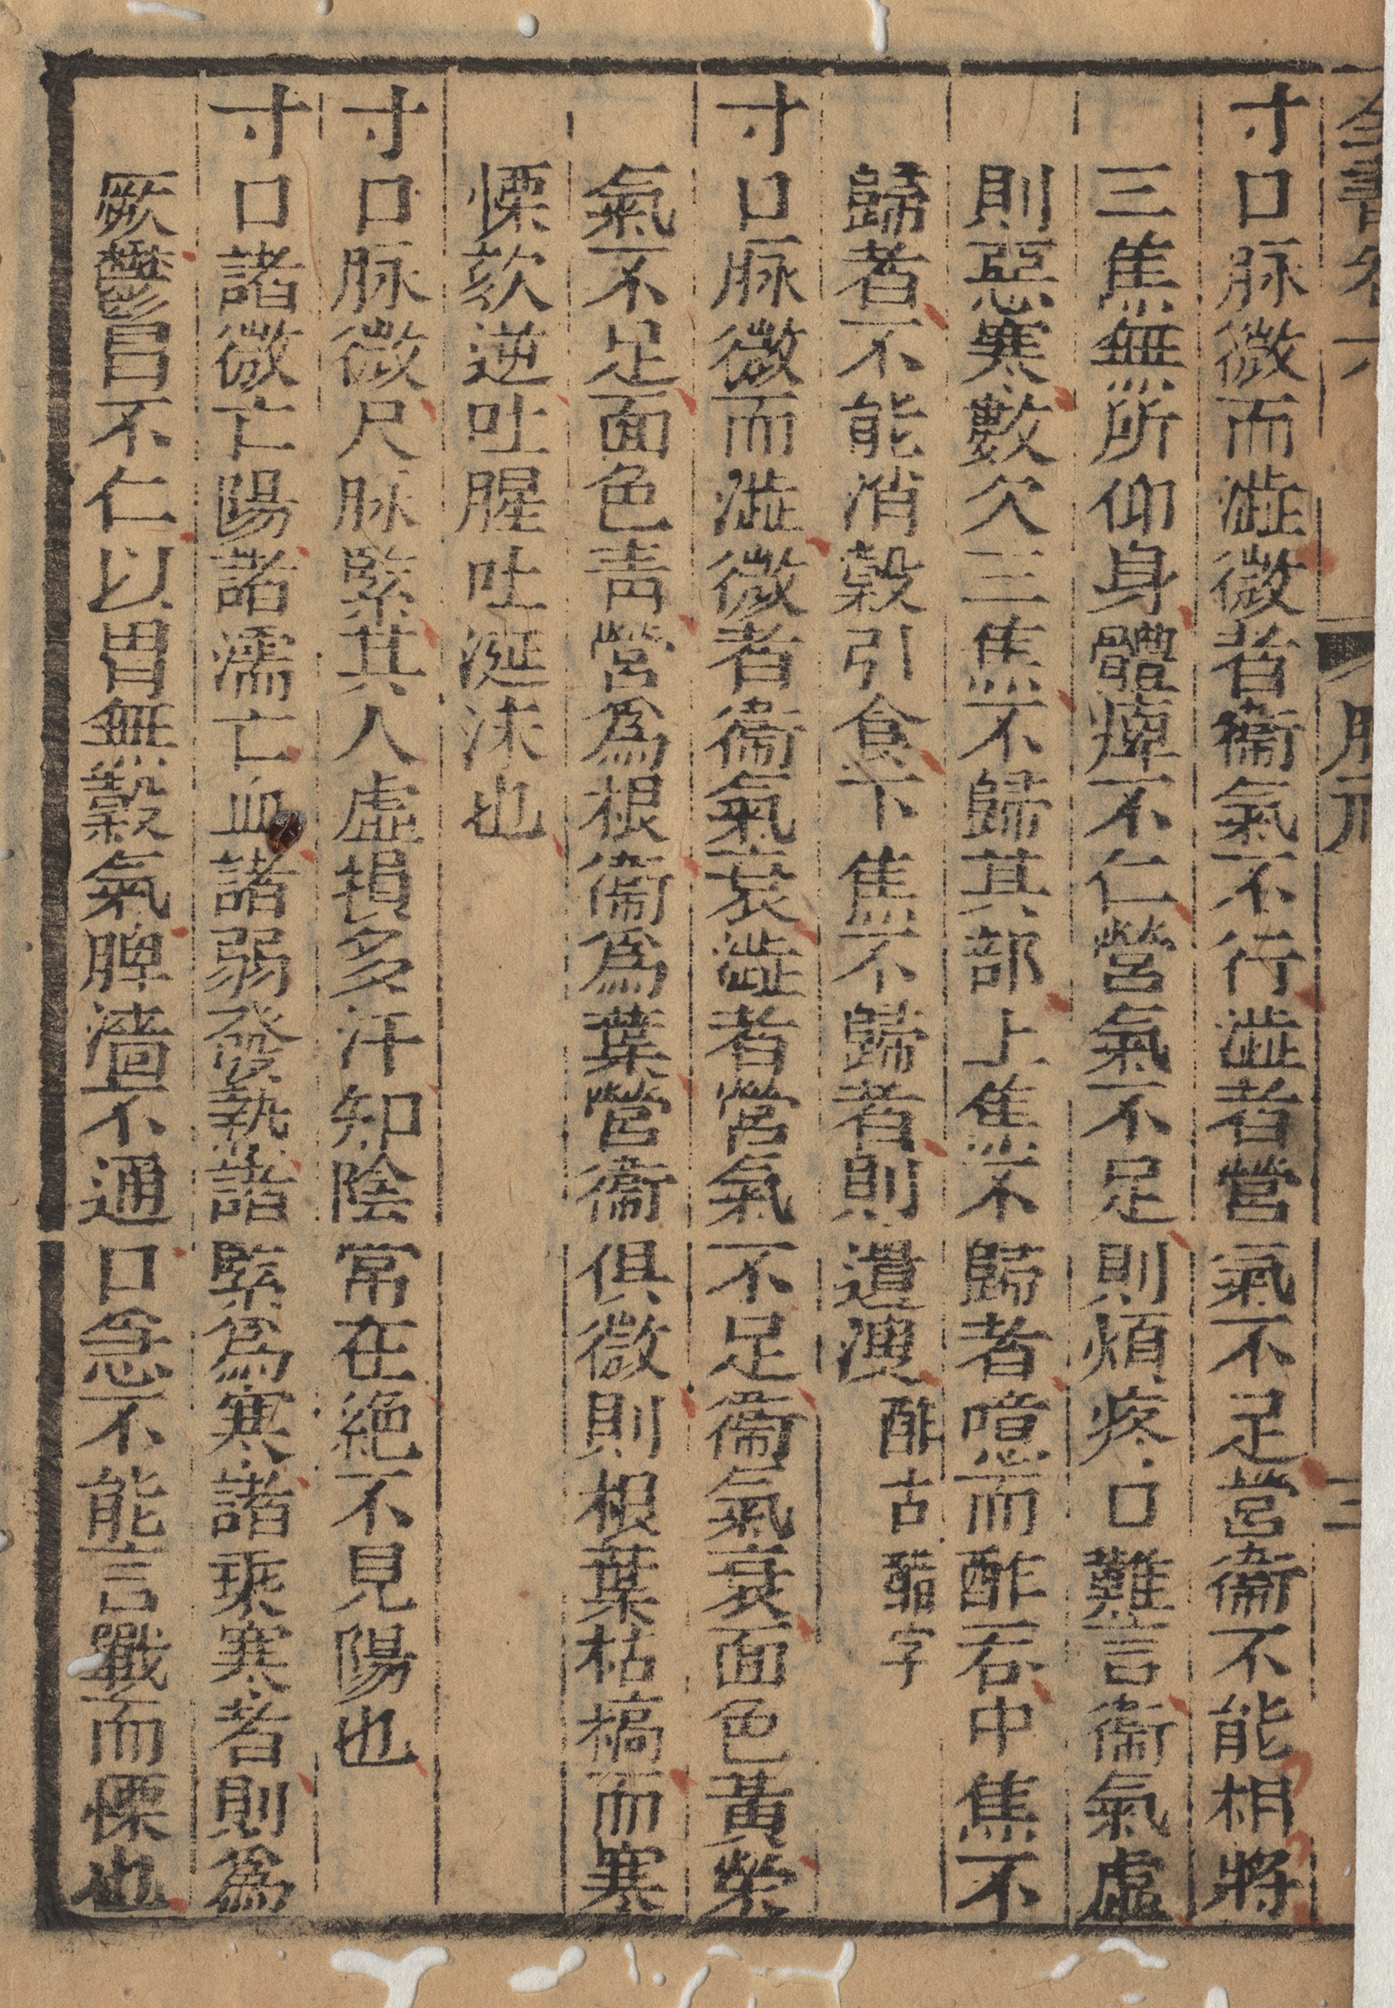 寸口脉微而澁微者衞氣不行澁者營氣不足營衞不能相將
三焦無所仰身體痺不仁營氣不足則煩疼口難言衞氣虛
則惡寒數欠三焦不歸其部上焦不歸者噫而酢吞中焦不
歸者不能消穀引食下焦不歸者則遺溲酢古醋字
寸口脉微而澁微者衞氣衰澁者營氣不足衞氣衰面色黃榮
氣不足面色靑營爲根衞爲葉營衞俱微則根葉枯槁而寒
慄欬逆吐腥吐涎沫也
寸口脉微尺脉緊其人虛損多汗知陰常在絶不見陽也
寸口諸微亡陽諸濡亡血諸弱發熱諸緊爲寒諸乘寒者則爲
厥鬱冒不仁以胃無穀氣脾濇不通口急不能言戰而慄也